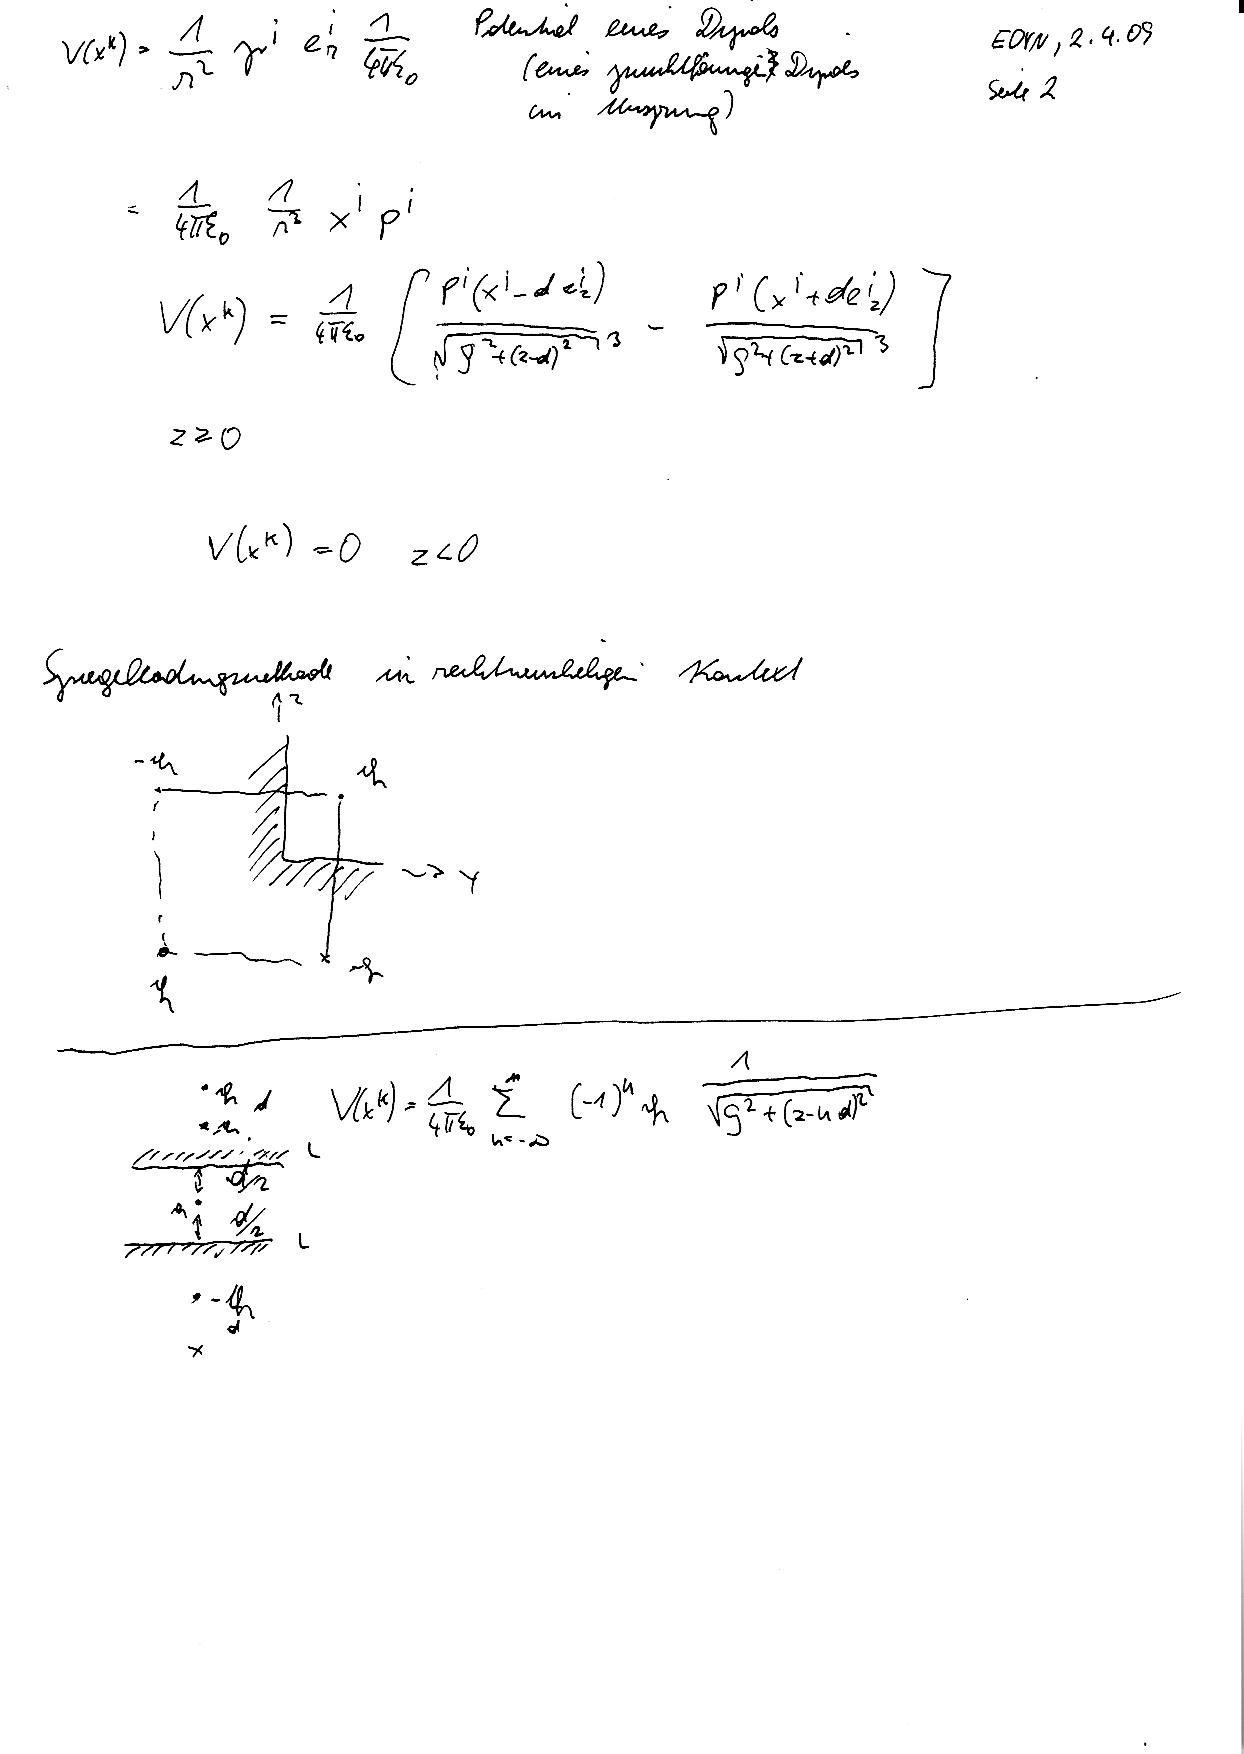 V(x^k) = 1/r² p^i e_r^i 1/(4πε₀) Potential eines Dipols
(eines punktförmigen Dipols
im Ursprung)
EDYN, 2.4.09
Seite 2
= 1/(4πε₀) 1/r² x^i p^i
V(x^k) = 1/(4πε₀) [ p^i(x^i - d e_z^i) / √(ρ²+(z-d)²)³ - p^i(x^i + d e_z^i) / √(ρ²+(z+d)²)³ ]
z ≥ 0
V(x^k) = 0 z<0
Spiegelladungsmethode in rechtwinkeligen
z
-q q
→ y
q -q
q d V(x^k) = 1/(4πε₀) Σ_{n=-∞}^∞ (-1)^n q 1/√(ρ²+(z-nd)²)
L
d/2
q d/2
L
-q
d
x